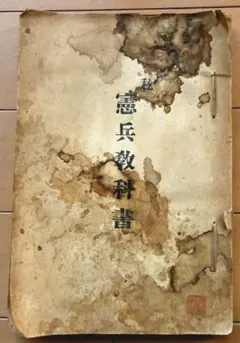 秘
憲兵教科書